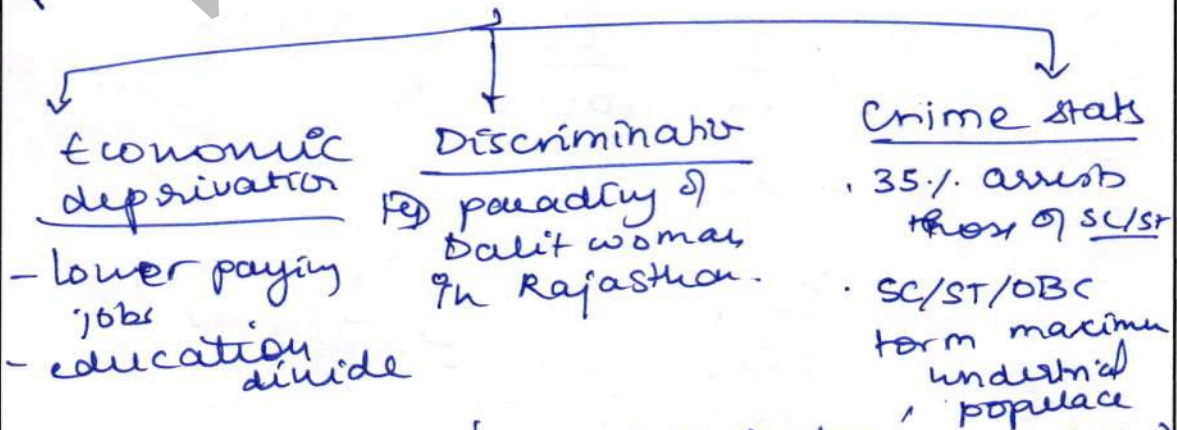 Economic
deprivation
- lower paying
jobs
- education
divide
Discrimination
eg parading of
Dalit woman
in Rajasthan.
Crime stats
. 35.1. arrests
those of SC/ST
. SC/ST/OBC
form maximum
undertrial
populace